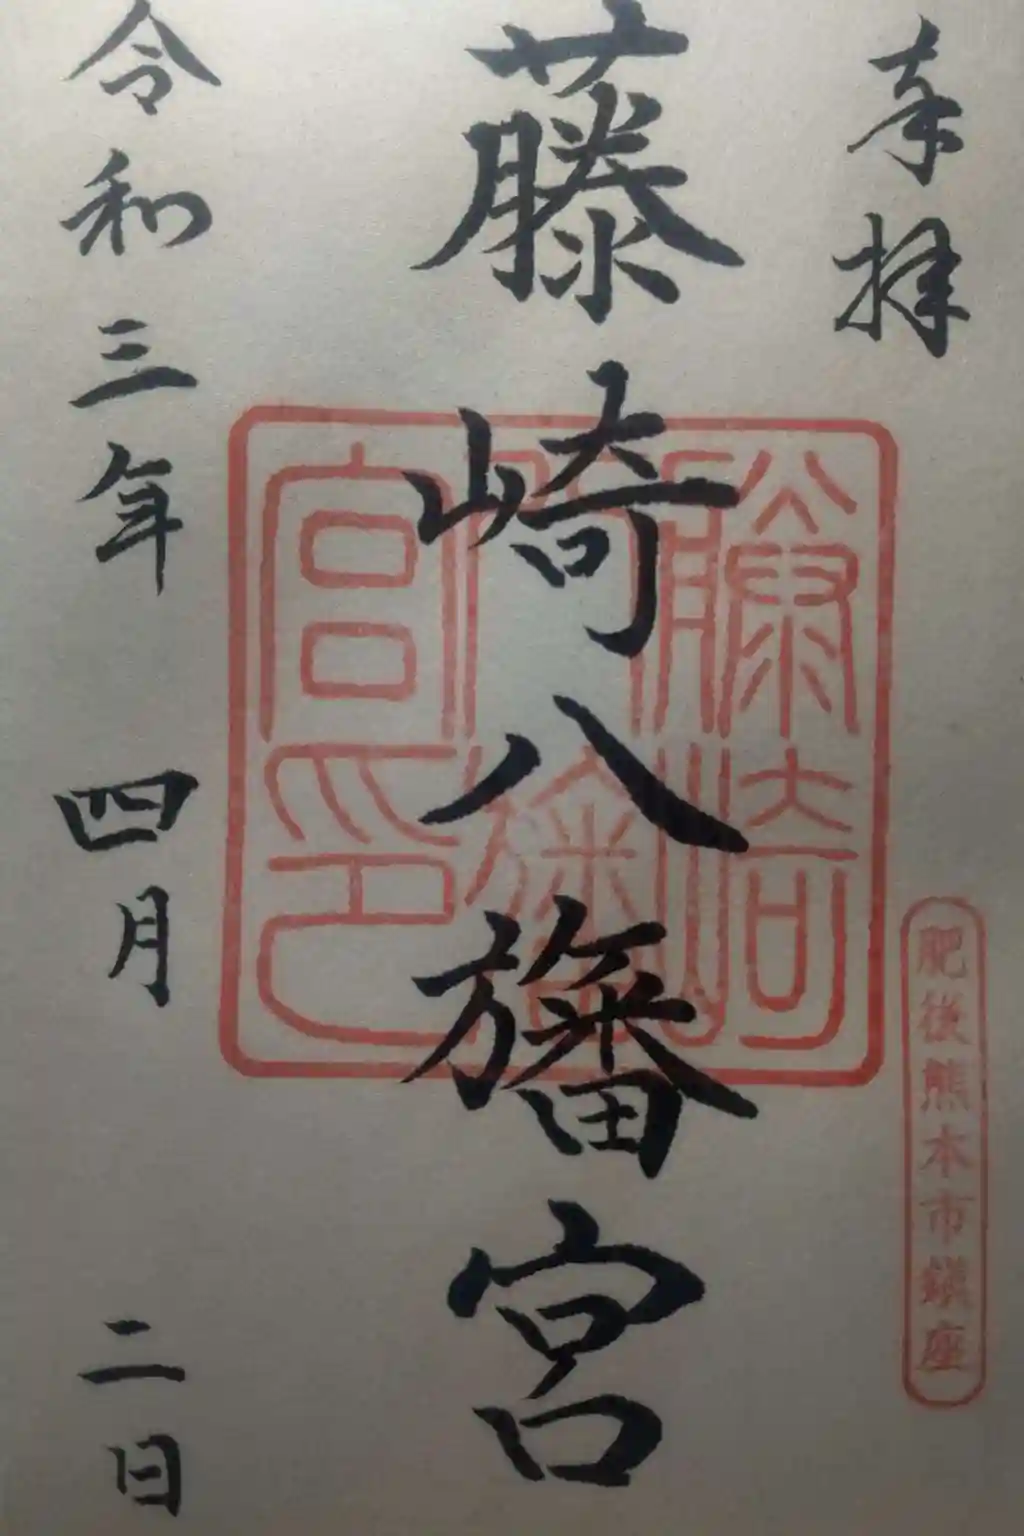 奉拝
肥後熊本市鎮座
藤崎八旛宮
藤崎八旛宮印
令和三年四月二日